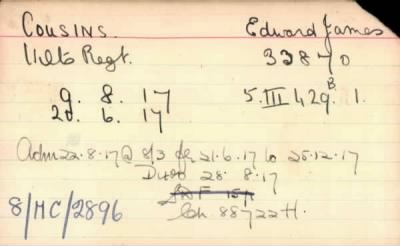 COUSINS. Edward James
Wilts Regt. 33870
9. 8. 17 5.III 429.B 1.
20. 6. 17
Adm 22.8.17 @ 8/3 fr 21.6.17 to 25.12.17
28. 8. 17
Ch 88722H.
8/MC/2896